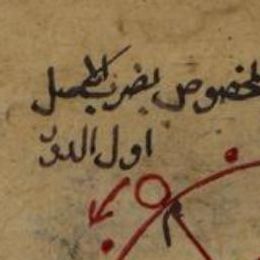 المخصوص بضرب الجمل
اول الدور